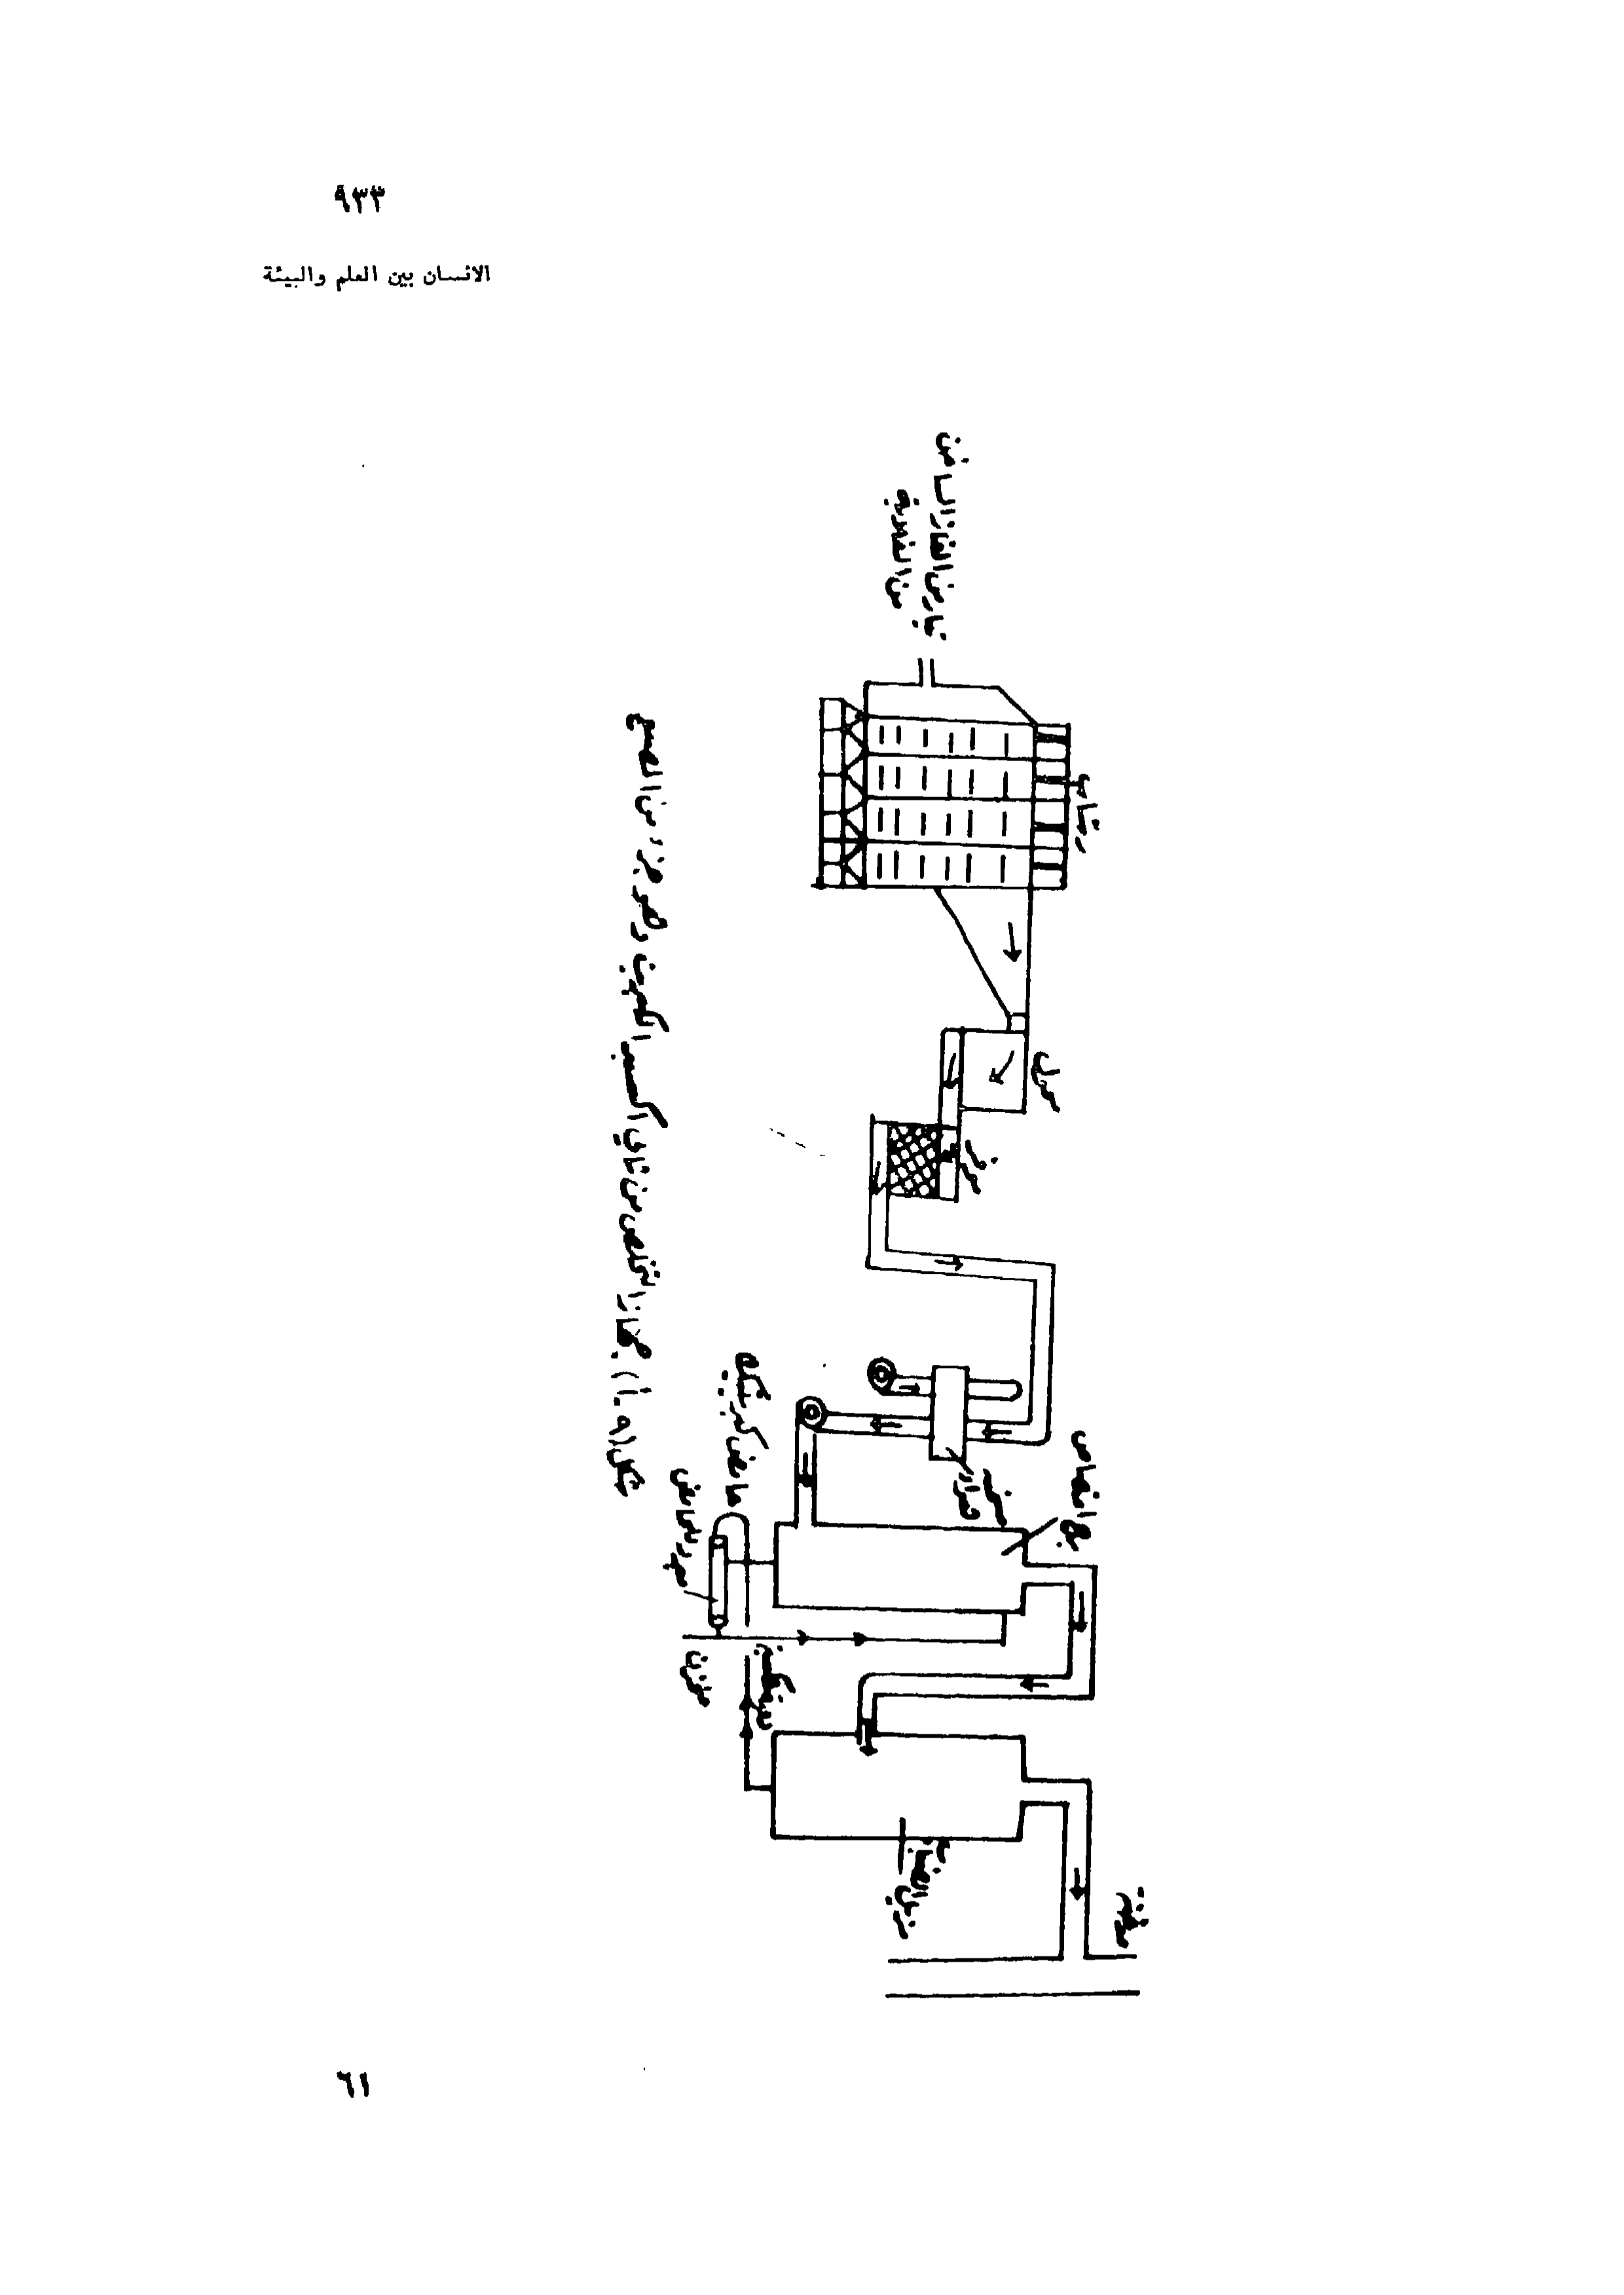 ٩٣٣
الانسان بين العلم والبيئة
تيار من الغاز الساخن
من الغلاية
محول
موفر
مبرد الحامض
حامض كبريتيك
برج امتصاص
مخزن
مدخنة
شكل (٩ ـ أ) جهاز التخلص من ثاني اكسيد الكبريت وهو جزء من المصنع
٦١